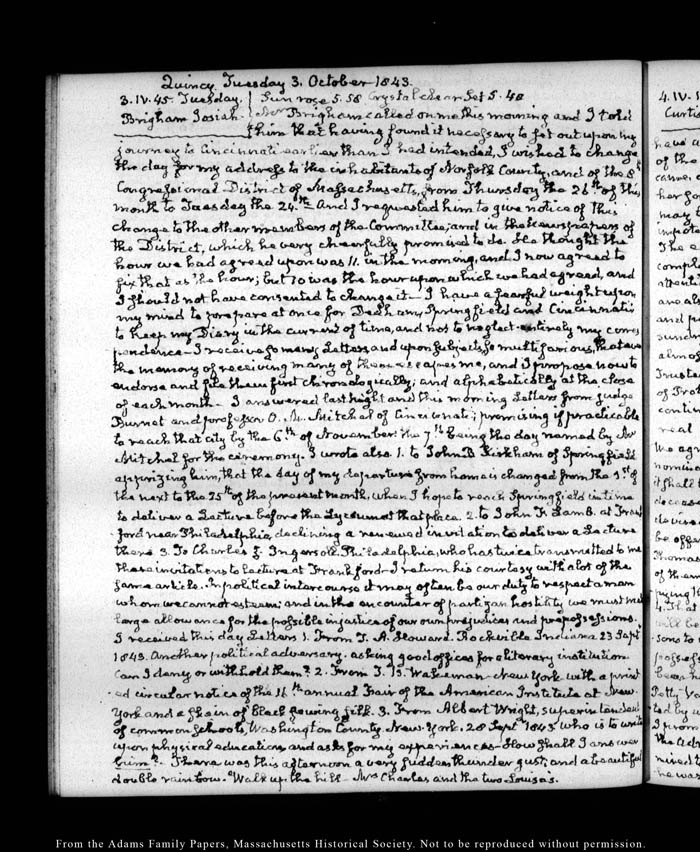 Quincy Tuesday 3. October 1843.
3. IV. 45. Tuesday. Sun rose 5.58 Crystal clear Set 5.40
Brigham Josiah. Mr Brigham called on me this morning and I told
him that having found it necessary to set out upon my
journey to Cincinnati earlier than I had intended, I wished to change
the day for my address to the inhabitants of Norfolk County, and of the 8th
Congressional District of Massachusetts, from Thursday the 26th of this
month to Tuesday the 24th. And I requested him to give notice of this
change to the other members of the Committee, and in the Newspapers of
the District, which he very cheerfully promised to do. He thought the
hour we had agreed upon was 11. in the morning, and I now agreed to
fix that as the hour; but 10 was the hour upon which we had agreed, and
I should not have consented to change it. I have a fearful weight upon
my mind to prepare at once for Dedham, Springfield and Cincinnati
to keep my Diary in the current of time, and not to neglect entirely my corres
pondence. I receive so many Letters and upon subjects so multifarious, that even
the memory of receiving many of them escapes me, and I propose now to
endorse and file them first chronologically; and alphabetically at the close
of each month. I answered last night and this morning Letters from Judge
Burnet and professor O. M. Mitchel of Cincinnati; promising if practicable
to reach that city by the 6th of November: the 7th being the day named by Mr
Mitchel for the ceremony. I wrote also 1. to John B Kirkham of Springfield
apprizing him, that the day of my departure from home is changed from the 1st of
the next to the 25th of the present month, when I hope to reach Springfield in time
to deliver a Lecture before the Lyceum at that place. 2. to John F. Lamb. at Frank
ford near Philadelphia, declining a renewed invitation to deliver a Lecture
there 3. To Charles J. Ingersoll. Philadelphia, who has twice transmitted to me
these invitations to lecture at Frankford. I return his courtesy with a lot of the
same article. In political intercourse it may often be our duty to respect a man
whom we cannot esteem; and in the encounter of partizan hostility we must make
large allowance for the possible injustice of our own prejudices and prepossessions.
I received this day Letters 1. From T. A. Howard. Rockville Indiana 23 Sept
1843. Another political adversary. asking good offices for a literary institution
Can I deny or withhold them? 2. From T. B. Wakeman. New York with a print
ed circular notice of the 16th annual Fair of the American Institute at New
York and a skein of Black sewing silk. 3. From Albert Wright, superintendent
of common schools, Washington County New-York. 28 Septr 1843 who is to write
upon physical education, and asks for my experiences. How shall I answer
him? There was this afternoon a very sudden thunder gust; and a beautiful
double rainbow. Walk up the hill. Mrs Charles and the two Louisa's.
4. IV.
Curtis
have
of the
may
The
and
of
real
it shall
be offer
Thomas
of them
4. That
will be
sons to
Petty
ted by
I prom
the adv
he was
From the Adams Family Papers, Massachusetts Historical Society. Not to be reproduced without permission.